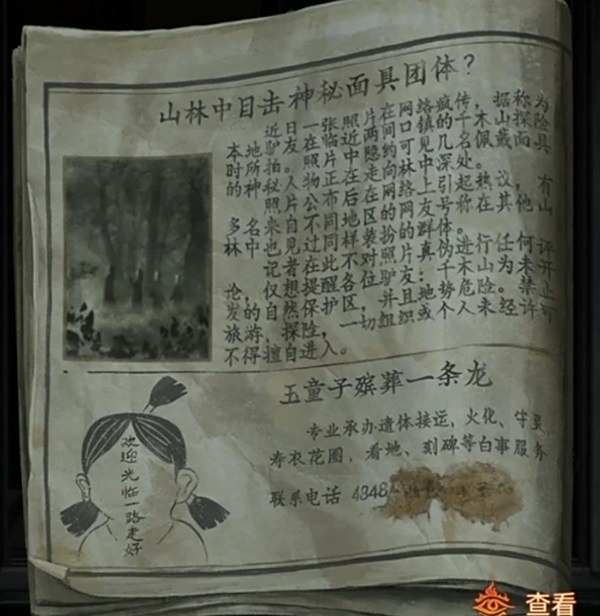 山林中目击神秘面具团体？
近日一张照片在网络疯传，据称为
本地驴友在临近两间口镇的千木山探险
时所拍。照片中隐约可见几名佩戴面具
的神秘人物正在走向林中深处。
照片公布后在网络上引起热议，有
多名来自不同地区的网友号称在其他山
林中也见过同样装扮的群体。
记者在此不对照片真伪进行任何评
论，仅想提醒各位驴友：千木山为未开
发的自然保护区，并且地势危险。禁止
旅游，探险，一切组织或个人未经许可
不得擅自进入。
五童子殡葬一条龙
专业承办遗体接运，火化、守灵、
寿衣花圈，看地、刻碑等白事服务
联系电话 4848
欢迎光临一路走好
查看